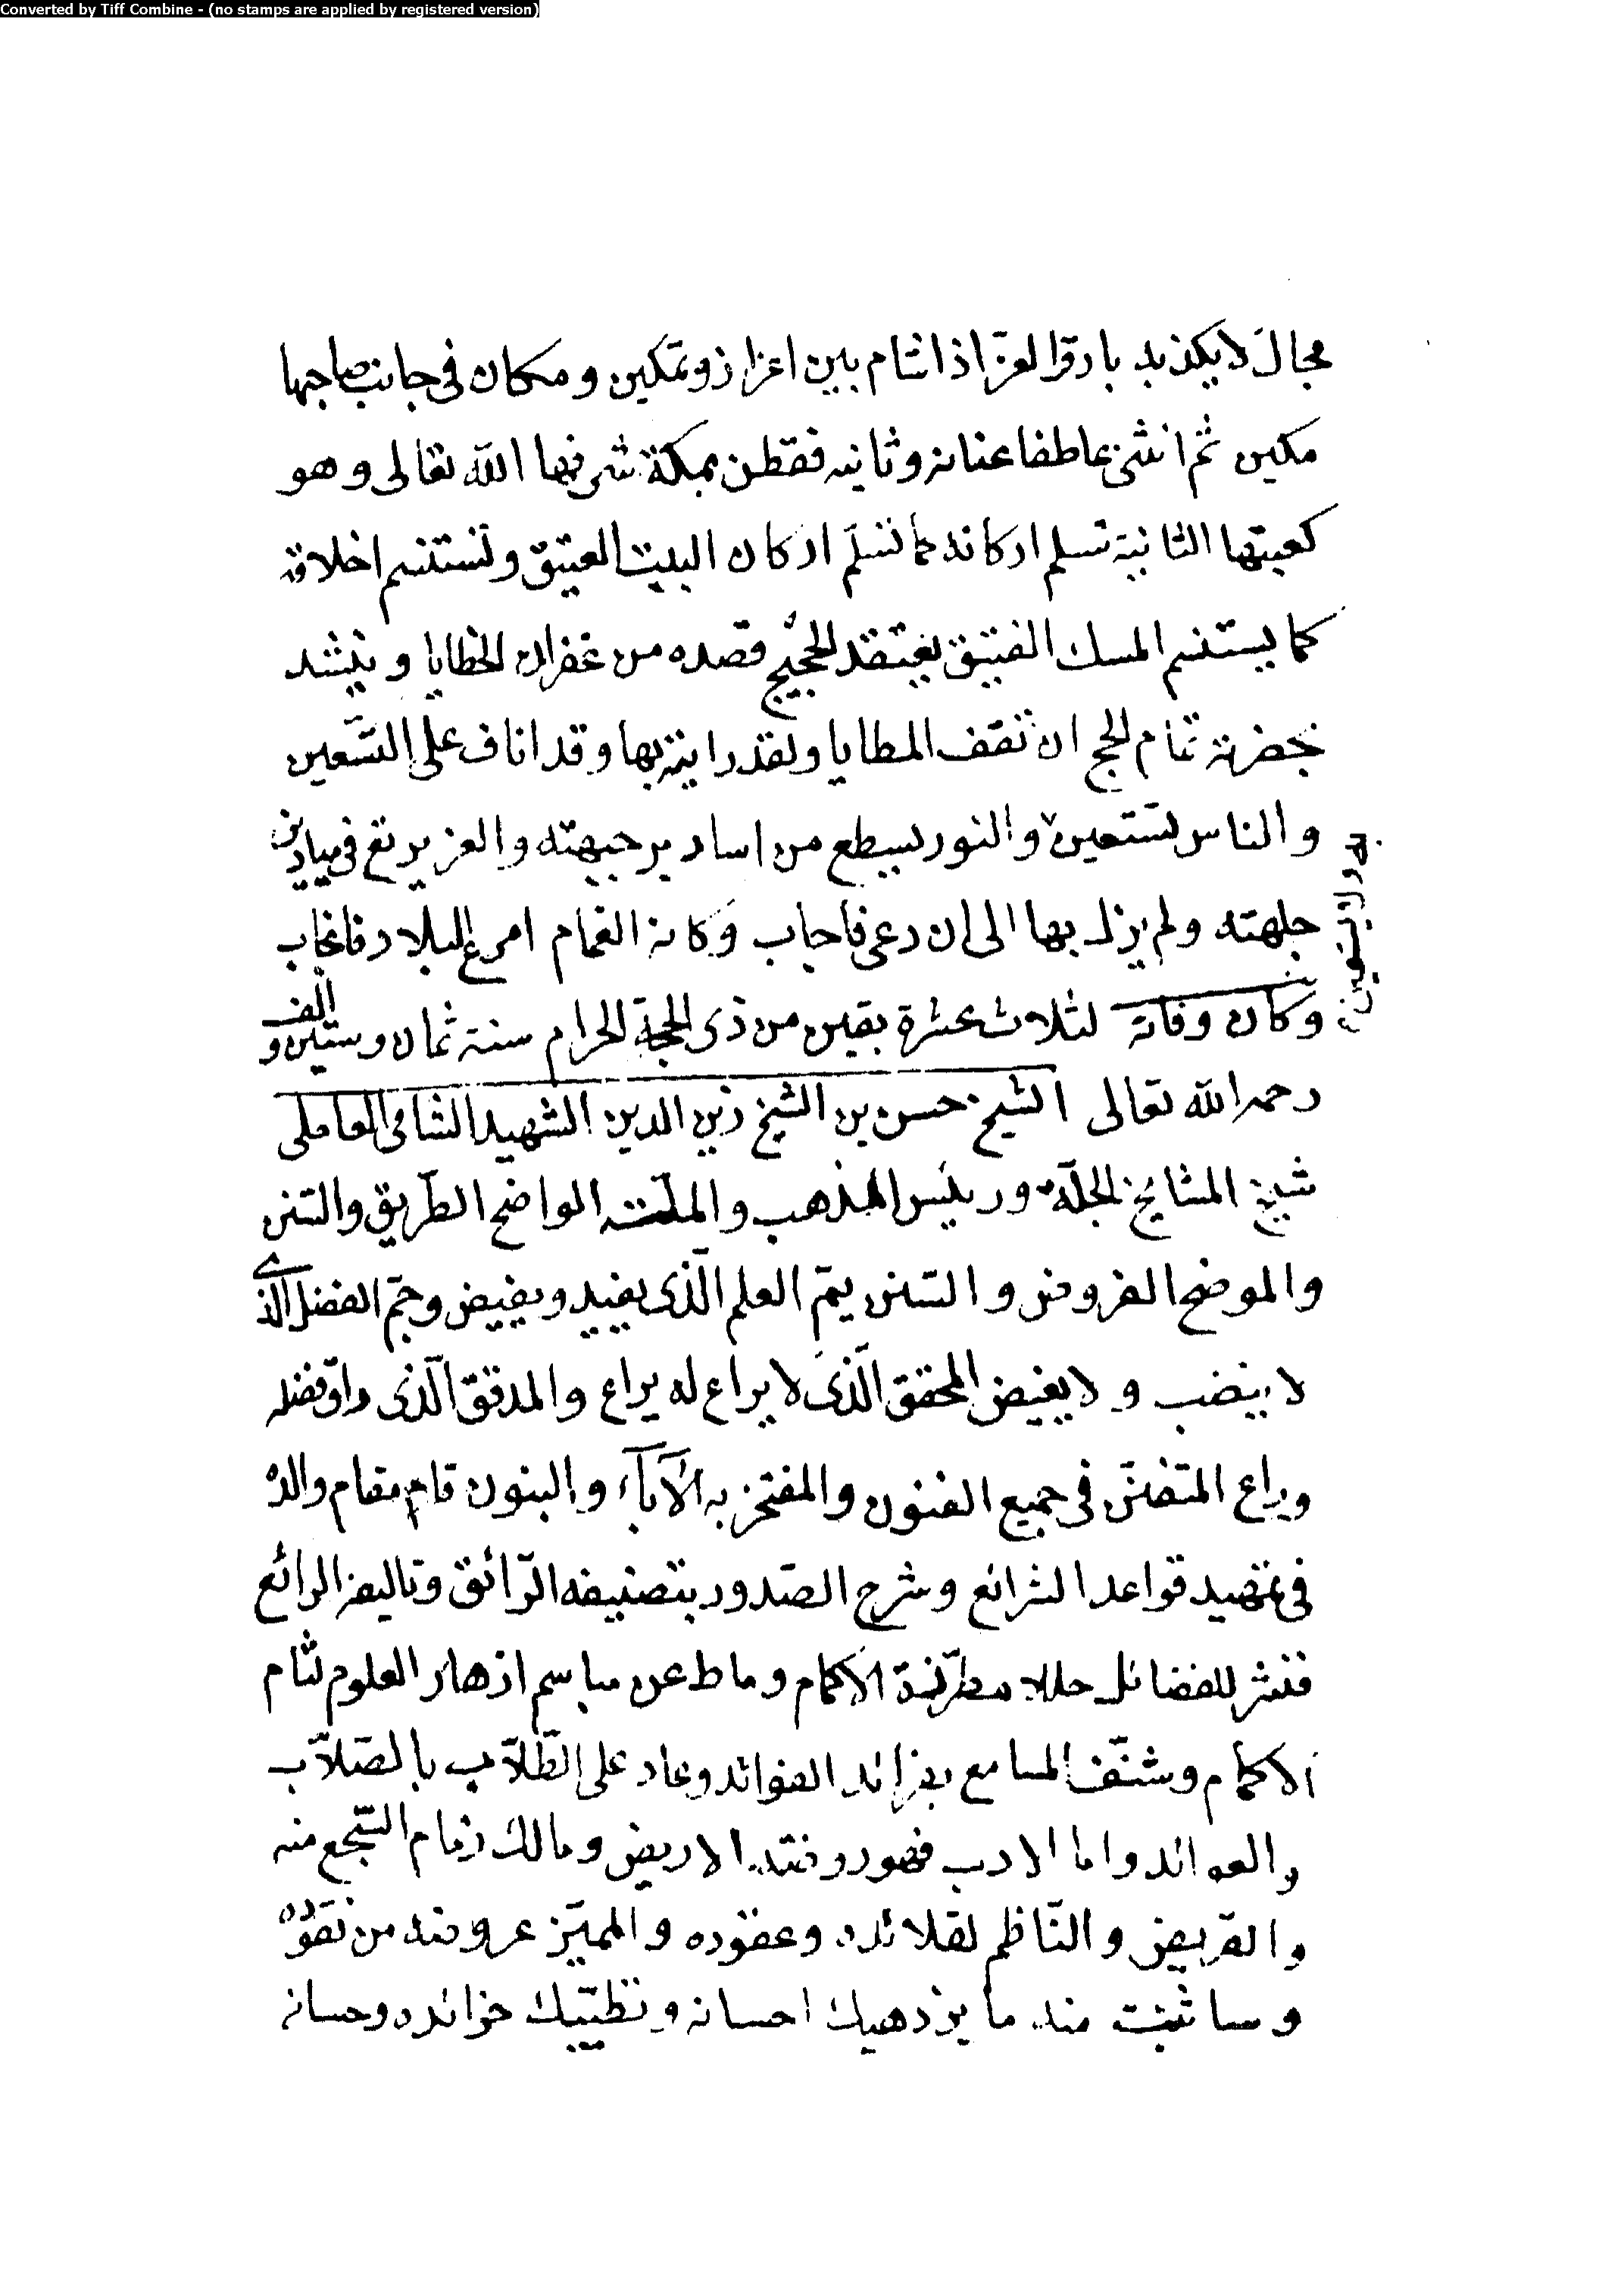 Converted by Tiff Combine - (no stamps are applied by registered version)
مجال لا يكذبه بارق العز اذا شام بين اعزاز وتمكين ومكان فى جانب صاحبها
مكين ثم انثنى عاطفا عنانه وثانيه فقطن بمكة شرفها الله تعالى وهو
كعبتها الثانية تستلم اركانه كما تستلم اركان البيت العتيق وتستنسم اخلاقه
كما يستنسم المسك الفتيق يعتقد الحجيج قصده من غفران الخطايا وينشد
بحضرته تمام الحج ان تقف المطايا ولقد رايته بها وقد اناف على التسعين
والناس تستعين والنور يسطع من اسارير جبهته والعز يرتع فى ميادين
جلهته ولم يزل بها الى ان دعى فاجاب وكانه الغمام امرع البلاد فانجاب
وكان وفاته لثلاث عشرة بقين من ذى الحجة الحرام سنة ثمان وستين والف
رحمه الله تعالى الشيخ حسن بن الشيخ زين الدين الشهيد الشامى العاملى
شيخ المشايخ الجلّة ورئيس المذهب والملّة الواضح الطّريق والسّنن
والموضح الفروض والسّنن يمّ العلم الّذى يفيد ويفيض وجمّ الفضل الّذى
لا ينضب ولا يغيض المحقق الّذى لا يراع له يراع والمدقق الّذى راق فضله
وراع المتفنّن فى جميع الفنون والمفتخر به الآباء والبنون قام مقام والده
فى تمهيد قواعد الشرائع وشرح الصّدور بتصنيفه الرّائق وتاليفه الرائع
فنشر للفضائل حللا مطرّزة الاكمام وماط عن مباسم ازهار العلوم لثام
الاكمام وشنّف المسامع بفرائد الفوائد وعاد على الطّلّاب بالصّلات
والعوائد واما الادب فهو روضته الاريض ومالك زمام السّجع منه
والقريض والنّاظم لقلائده وعقوده والمميّز عروضه من نقوده
وساثبت منه ما يزدهيك احسانه وتطبيك خرائده وحسانه